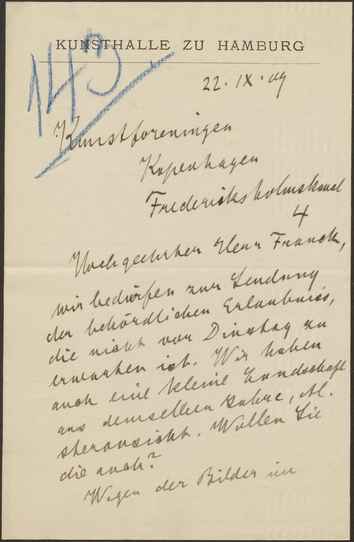 KUNSTHALLE ZU HAMBURG
143
22. IX. 09
Kunstforeningen
Kopenhagen
Frederiksholmskanal
4
Hochgeehrter Herr Franck,
wir bedürfen zur Sendung
der behördlichen Erlaubniss,
die nicht vor Dinstag zu
erwarten ist. Wir haben
auch eine kleine Landschaft
aus demselben Jahre, Al-
steransicht. Wollen Sie
die auch?
Wegen der Bilder im